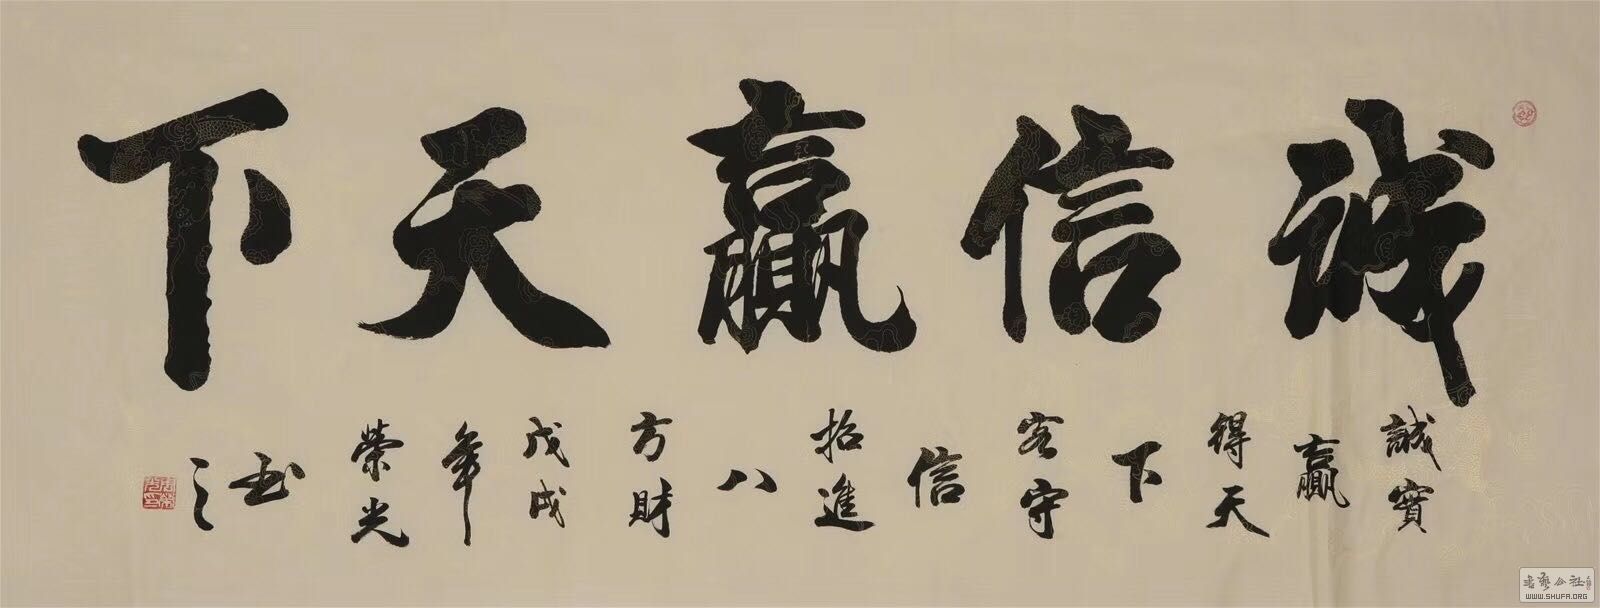 誠信赢天下
誠實
赢
得天
下
客守
信
招進
八
方財
戊戌
年
榮光
书
之
书艺公社
WWW.SHUFA.ORG